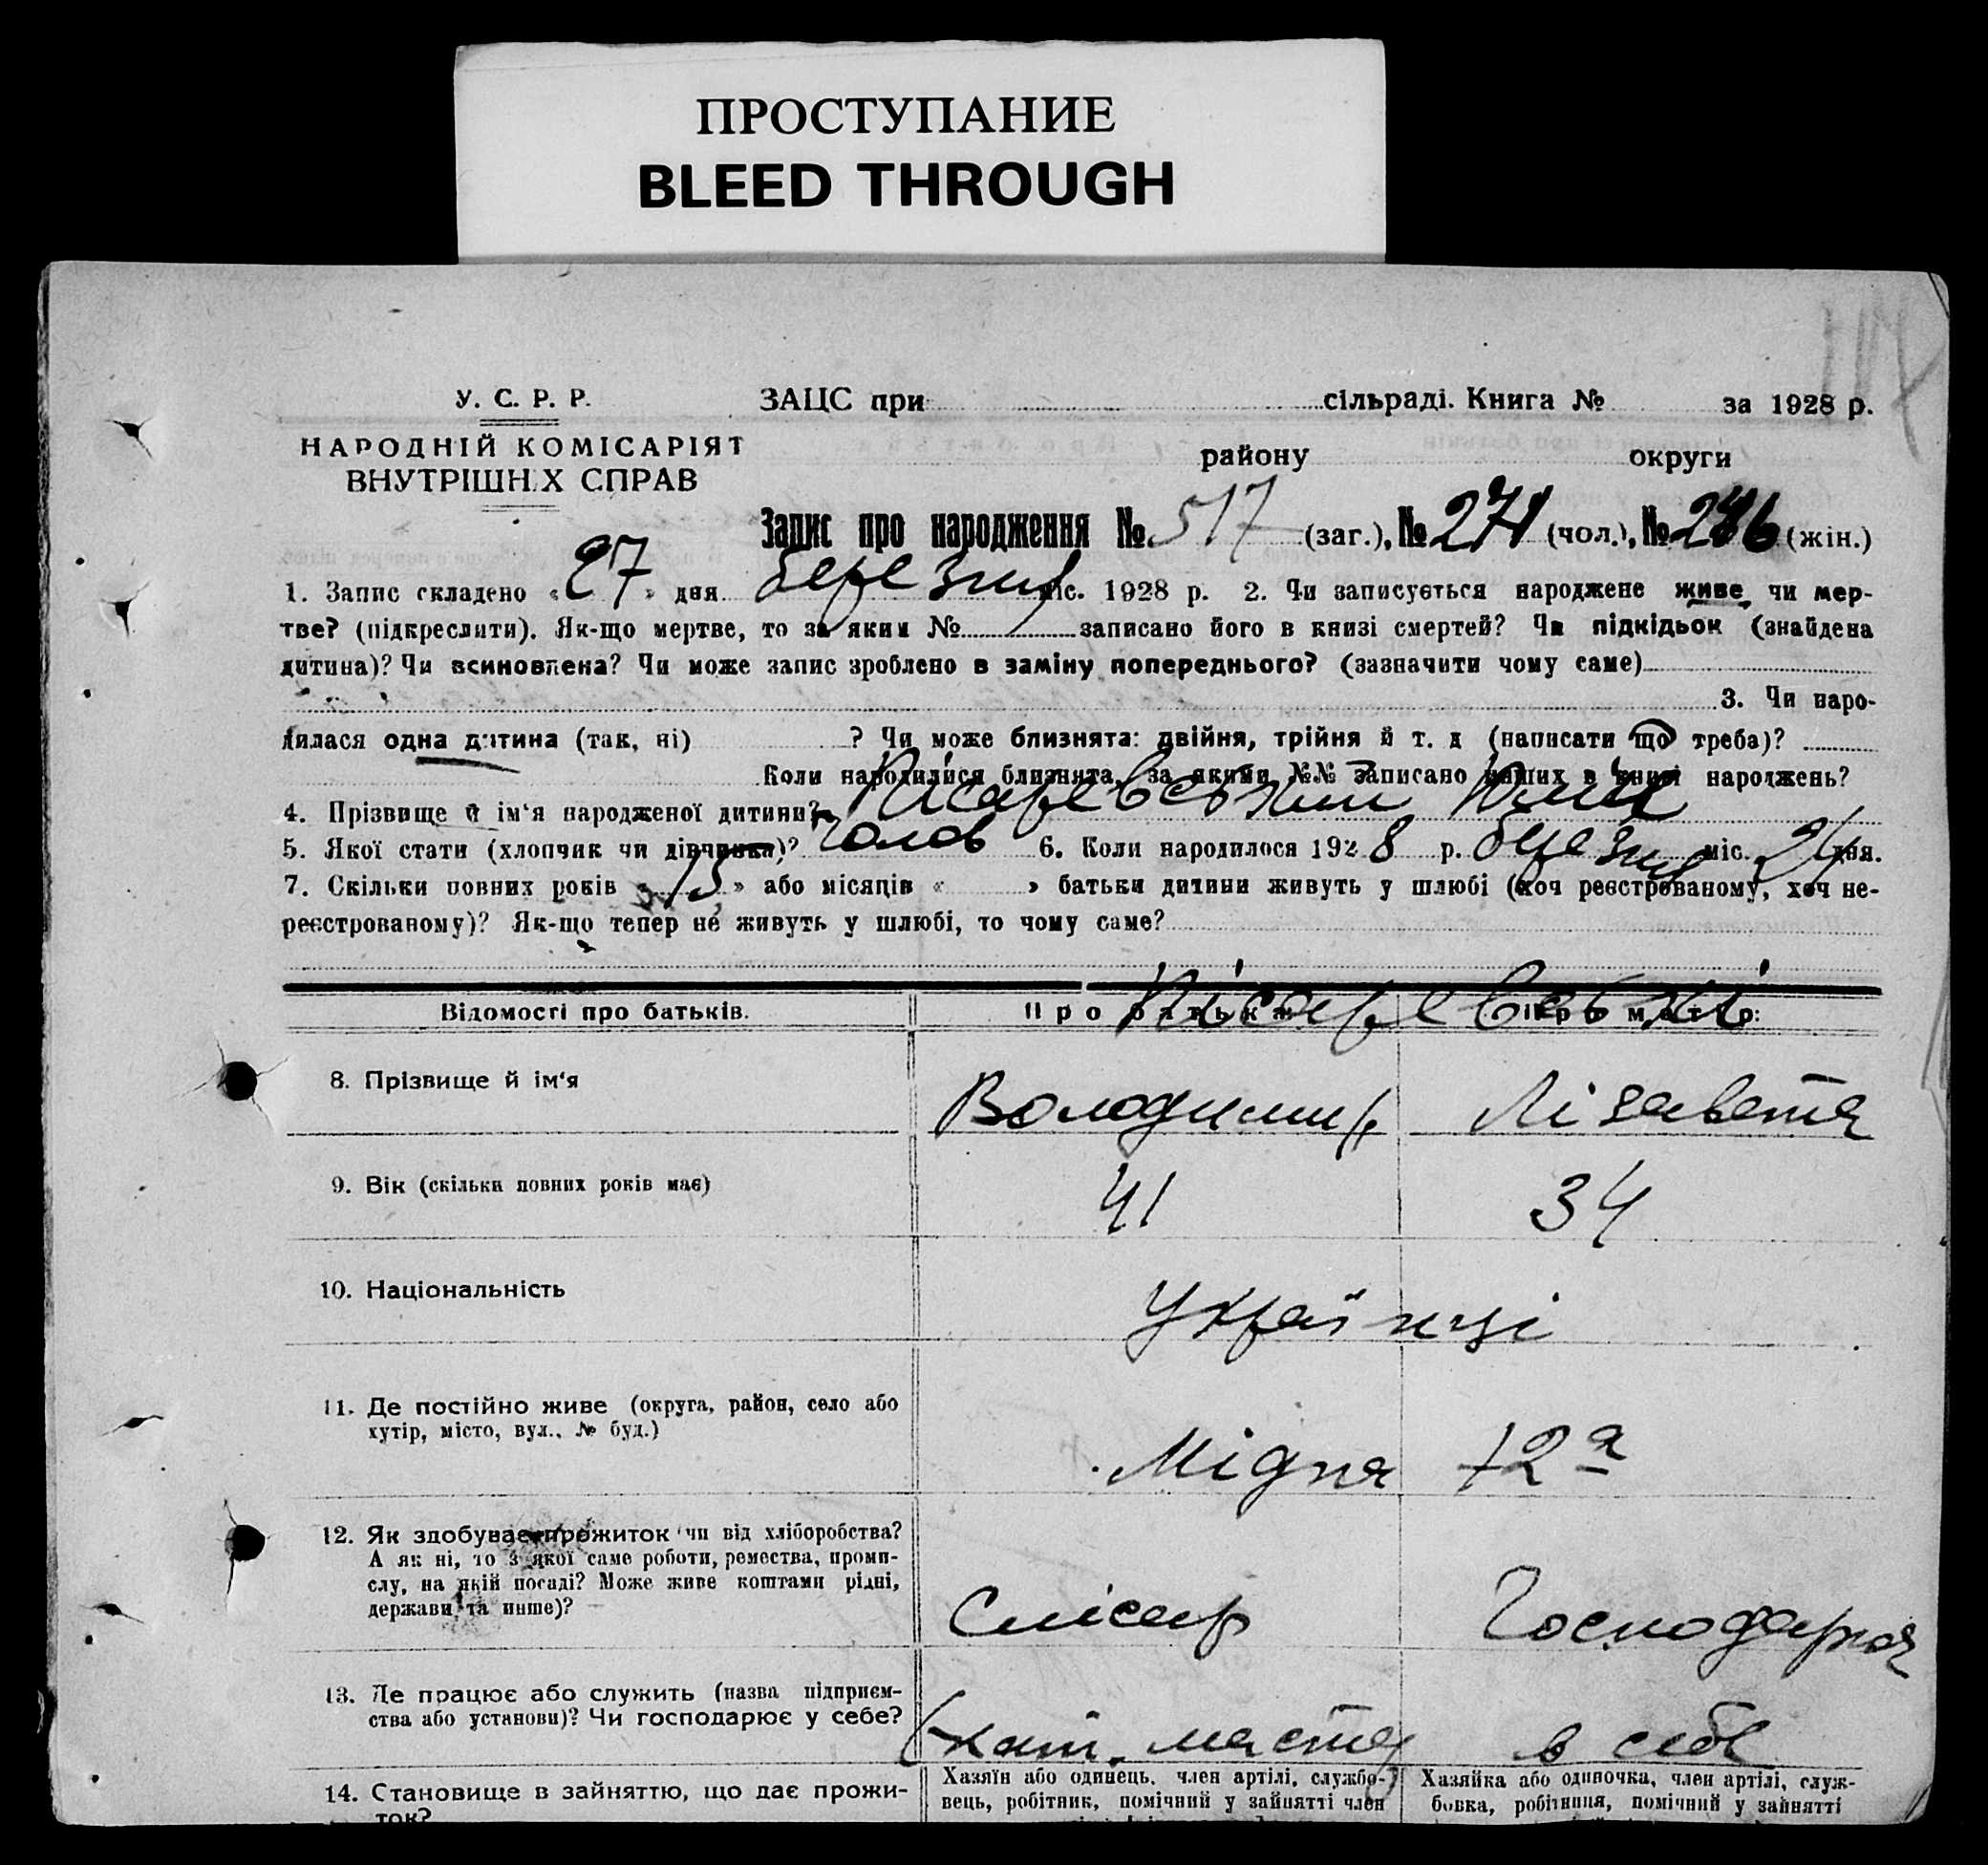 ПРОСТУПАНИЕ
BLEED THROUGH
У. С. Р. Р. ЗАЦС при сільраді. Книга № за 1928 р.
НАРОДНІЙ КОМІСАРІЯТ
ВНУТРІШНІХ СПРАВ
району округи
Запис про народження № 517 (заг.), № 271 (чол.), № 246 (жін.)
1. Запис складено «27» дня березня міс. 1928 р. 2. Чи записується народжене живе чи мер-
тве? (підкреслити). Як-що мертве, то за яким № записано його в книзі смертей? Чи підкідьок (знайдена
дитина)? Чи всиновлена? Чи може запис зроблено в заміну попереднього? (зазначити чому саме)
3. Чи наро-
дилася одна дитина (так, ні) ? Чи може близнята: двійня, трійня й т. д (написати що треба)?
Коли народилися близнята, за якими №№ записано инших в книзі народжень?
4. Прізвище й ім'я народженої дитини? Писаревський
5. Якої стати (хлопчик чи дівчинка)? чолов 6. Коли народилося 1928 р. березня міс. 24 дня.
7. Скільки повних років «15» або місяців « » батьки дитини живуть у шлюбі (хоч реєстрованому, хоч не-
реєстрованому)? Як-що тепер не живуть у шлюбі, то чому саме?
Відомості про батьків. Про батька Про матір:
Пісаревські
8. Прізвище й ім'я Володимир Лізавета
9. Вік (скільки повних років має) 41 34
10. Національність Українці
11. Де постійно живе (округа, район, село або
хутір, місто, вул., № буд.)
Мідна 72а
12. Як здобуває прожиток чи від хліборобства?
А як ні, то з якої саме роботи, ремества, проми-
слу, на якій посаді? Може живе коштами рідні,
держави та инше)?
Слісар Господарка
13. Де працює або служить (назва підприєм-
ства або установи)? Чи господарює у себе?
в себе
14. Становище в зайняттю, що дає прожи-
ток?
Хазяїн або одинець, член артілі, службо-
вець, робітник, помічний у зайнятті член
Хазяйка або одиночка, член артілі, служ-
бовка, робітниця, помічний у зайнятті